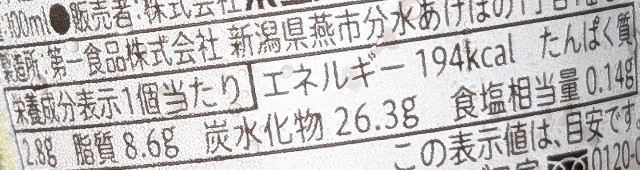 100ml●販売者:株式会社
製造所:第一食品株式会社 新潟県燕市分水あけぼの1丁目
栄養成分表示1個当たり エネルギー 194kcal たんぱく質
2.8g 脂質 8.6g 炭水化物 26.3g 食塩相当量 0.14g
この表示値は、目安です
0120-